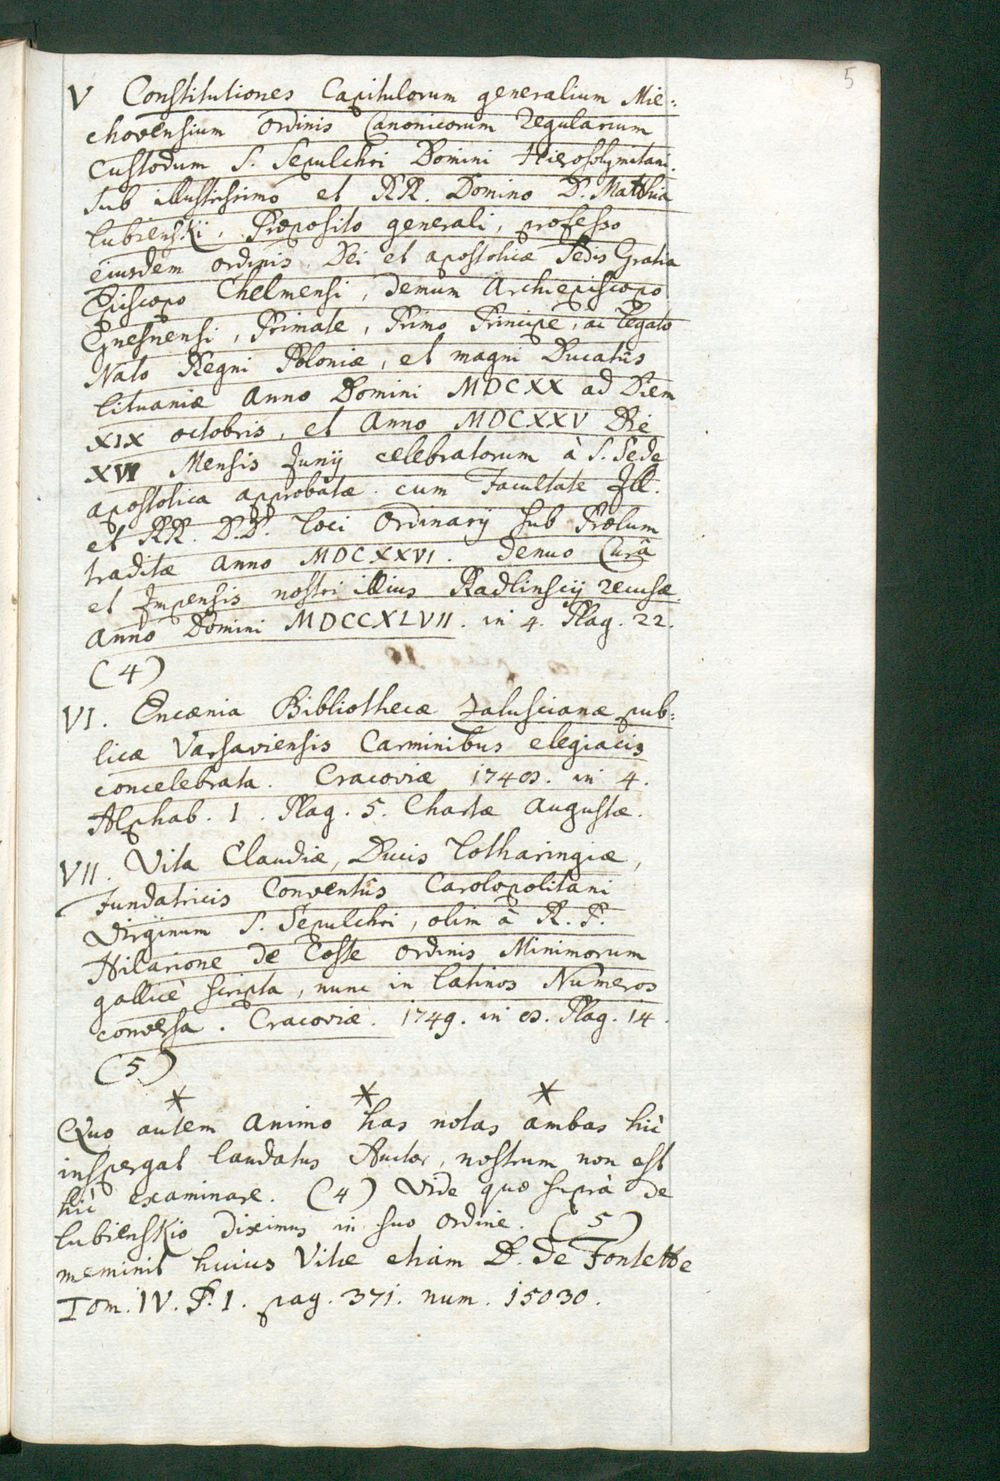 5
V Constitutiones Capitulorum generalium Mie:
chovensium Ordinis Canonicorum Regularium
Custodum S. Sepulchri Domini Hierosolymitani.
Sub illustrissimo et RR. Domino D. Mathia
Lubienski, Præposito generali, professo
ejusdem ordinis Dei et apostolicæ Sedis Gratia
Episcopo Chelmensi, demum Archiepiscopo
Gnesnensi, Primate, Primo Principe, ac Legato
Nato Regni Poloniæ, et magni Ducatûs
Lituaniæ Anno Domini MDCXX ad Diem
XIX octobris, et Anno MDCXXV Die
XVI Mensis Junij celebratorum à S. Sede
apostolica approbatæ. cum Facultate Ill.
et RR. D.D. Loci Ordinarij sub Prælum
traditæ anno MDCXXVI. Denuo Curâ
et Impensis nostri illius Radlinscij recusæ.
Anno Domini MDCCXLVII. in 4. Plag. 22.
(4)
VI. Encænia Bibliothecæ Zaluscianæ pub:
licæ Varsaviensis Carminibus elegiacis
concelebrata. Cracoviæ 1748. in 4.
Alphab. 1. Plag. 5. Chartæ Augustæ.
VII. Vita Claudiæ, Ducis Lotharingiæ,
Fundatricis Conventûs Carolopolitani
Virginum S. Sepulchri, olim â R. P.
Hilarione de Coste Ordinis Minimorum
gallicè scripta, nunc in Latinos Numeros
conversa. Cracoviæ. 1749. in 8. Plag. 14.
(5)
* * *
Quo autem animo has notas ambas hîc
inspergat laudatus Auctor, nostrum non est
hîc examinare. (4) Vide quæ suprà de
Lubienskio diximus in suo ordine. (5)
meminit huius Vitæ etiam D. de Fontette
Tom. IV. P. I. pag. 371. num. 15030.